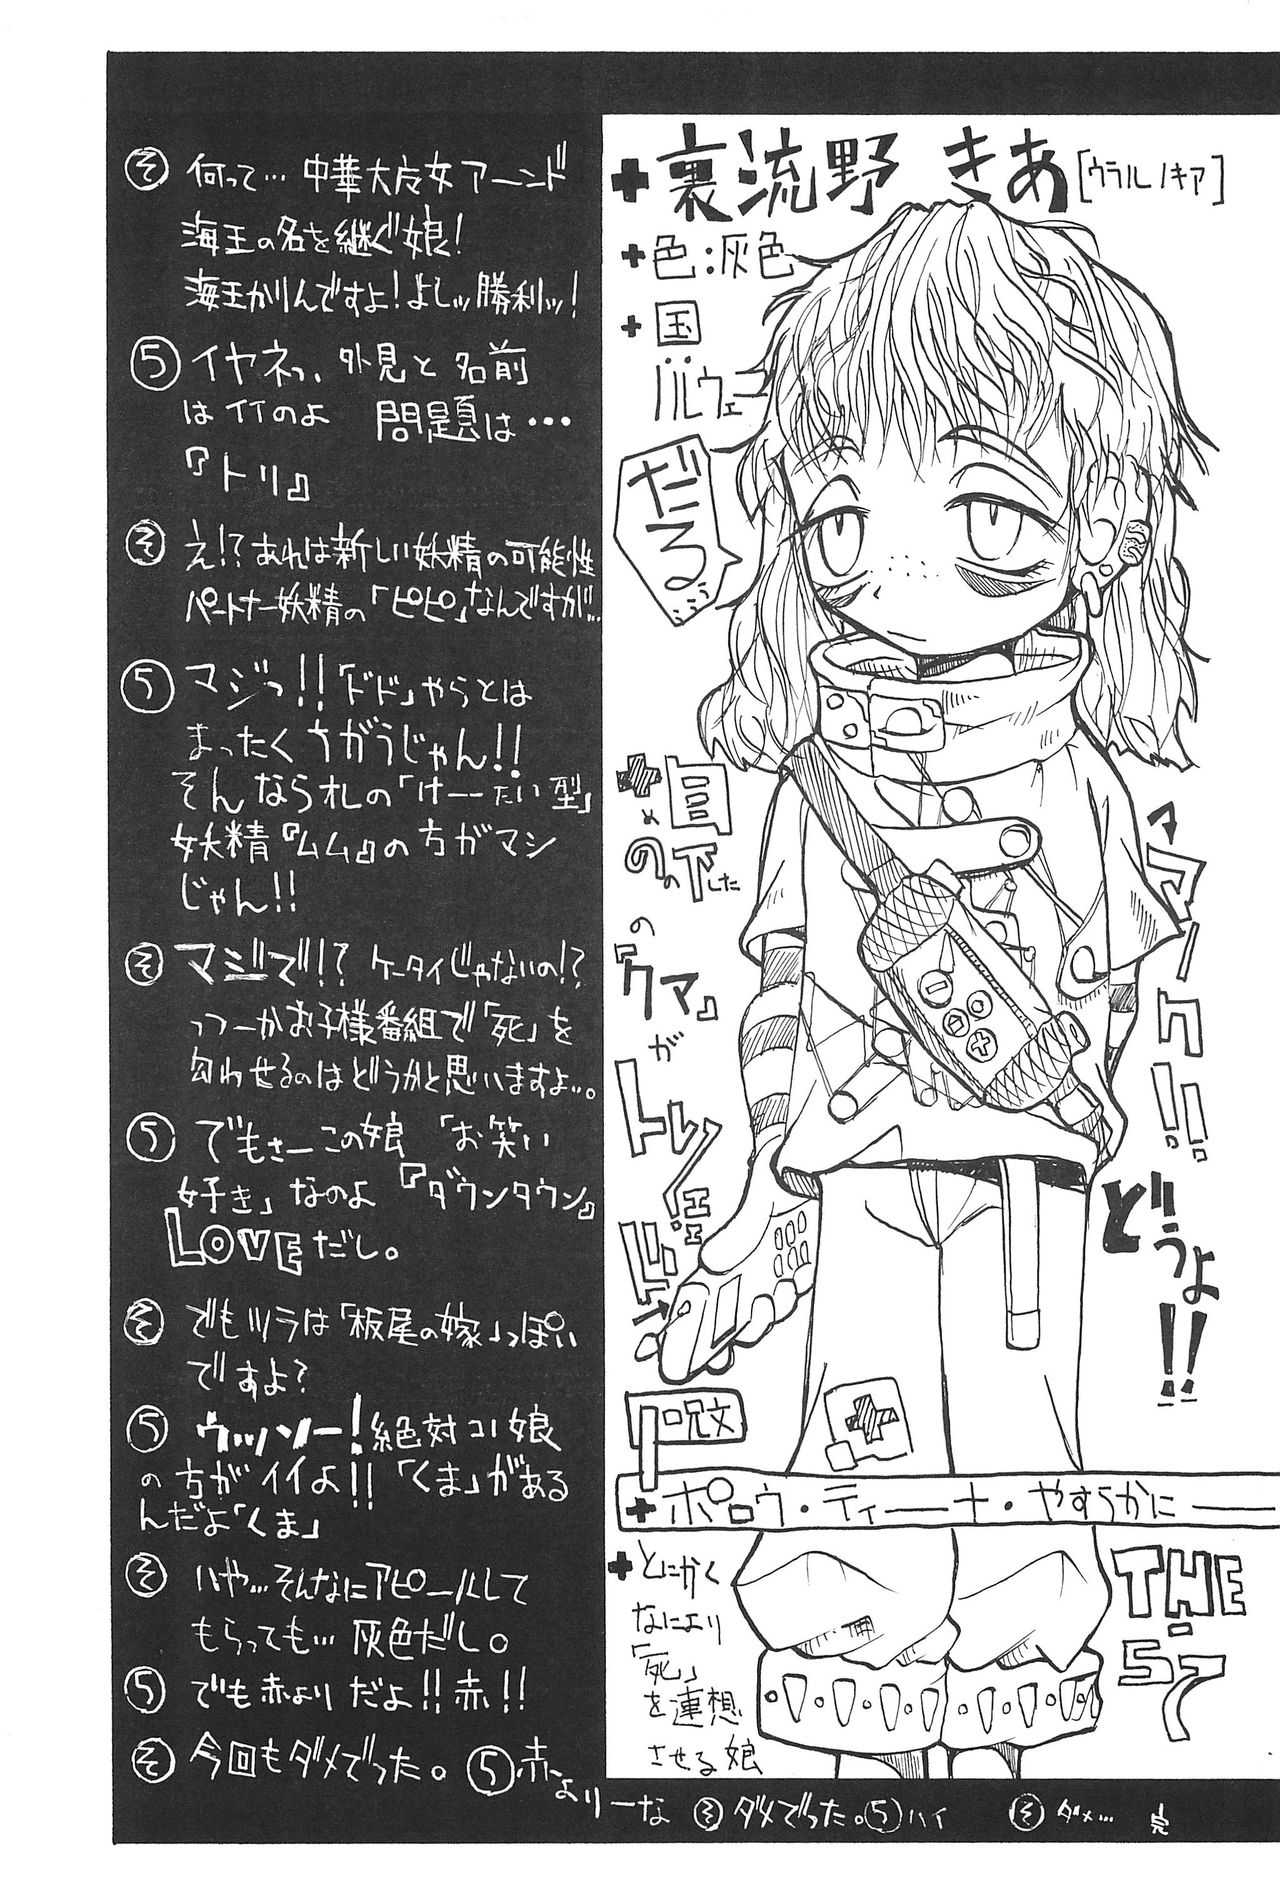 ✚裏流野 きあ[ウラルノキア]
✚色:灰色
✚国
ノルウェー
だるぅ…
✚目の下の
めのしたの
『クマ』が
トレンド
マーク!!
どうよ!!
呪文
✚ポロウ・ティーナ・やすらかに――
✚とにかく
なにより
「死」
を連想
させる娘
THE
57
そ 何って…中華大好女アーンド
海王の名を継ぐ娘!
海王かりんですよ!よしッ勝利ッ!
5 イヤネっ、外見と名前
はイイのよ 問題は…
『トリ』
そ え!?あれは新しい妖精の可能性
パートナー妖精の「ピピ」なんですが…
5 マジっ!!「ドド」やらとは
まったくちがうじゃん!!
そんなら私の「けーたい型」
妖精『ムム』の方がマシ
じゃん!!
そ マジで!? ケータイじゃないの!?
っつーかお子様番組で「死」を
匂わせるのはどうかと思いますよ…。
5 でもさーこの娘 「お笑い
好き」なのよ 『ダウンタウン』
LOVEだし。
そ でもツラは「板尾の嫁」っぽい
ですよ?
5 ウッソー!絶対コノ娘
の方がイイよ!!「くま」がある
んだよ「くま」
そ いや…そんなにアピールして
もらっても…灰色だし。
5 でも赤よりだよ!!赤!!
そ 今回もダメでった。 5 赤
よりーな そ ダメでった。 5 ハイ そ ダメ… 完